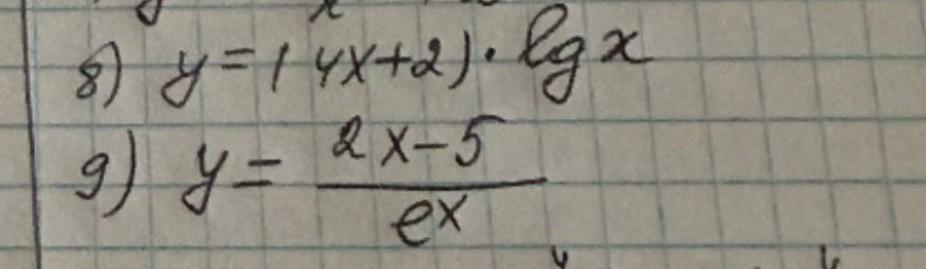 8) y = (4x+2) · lg x
9) y = \frac{2x-5}{e^x}